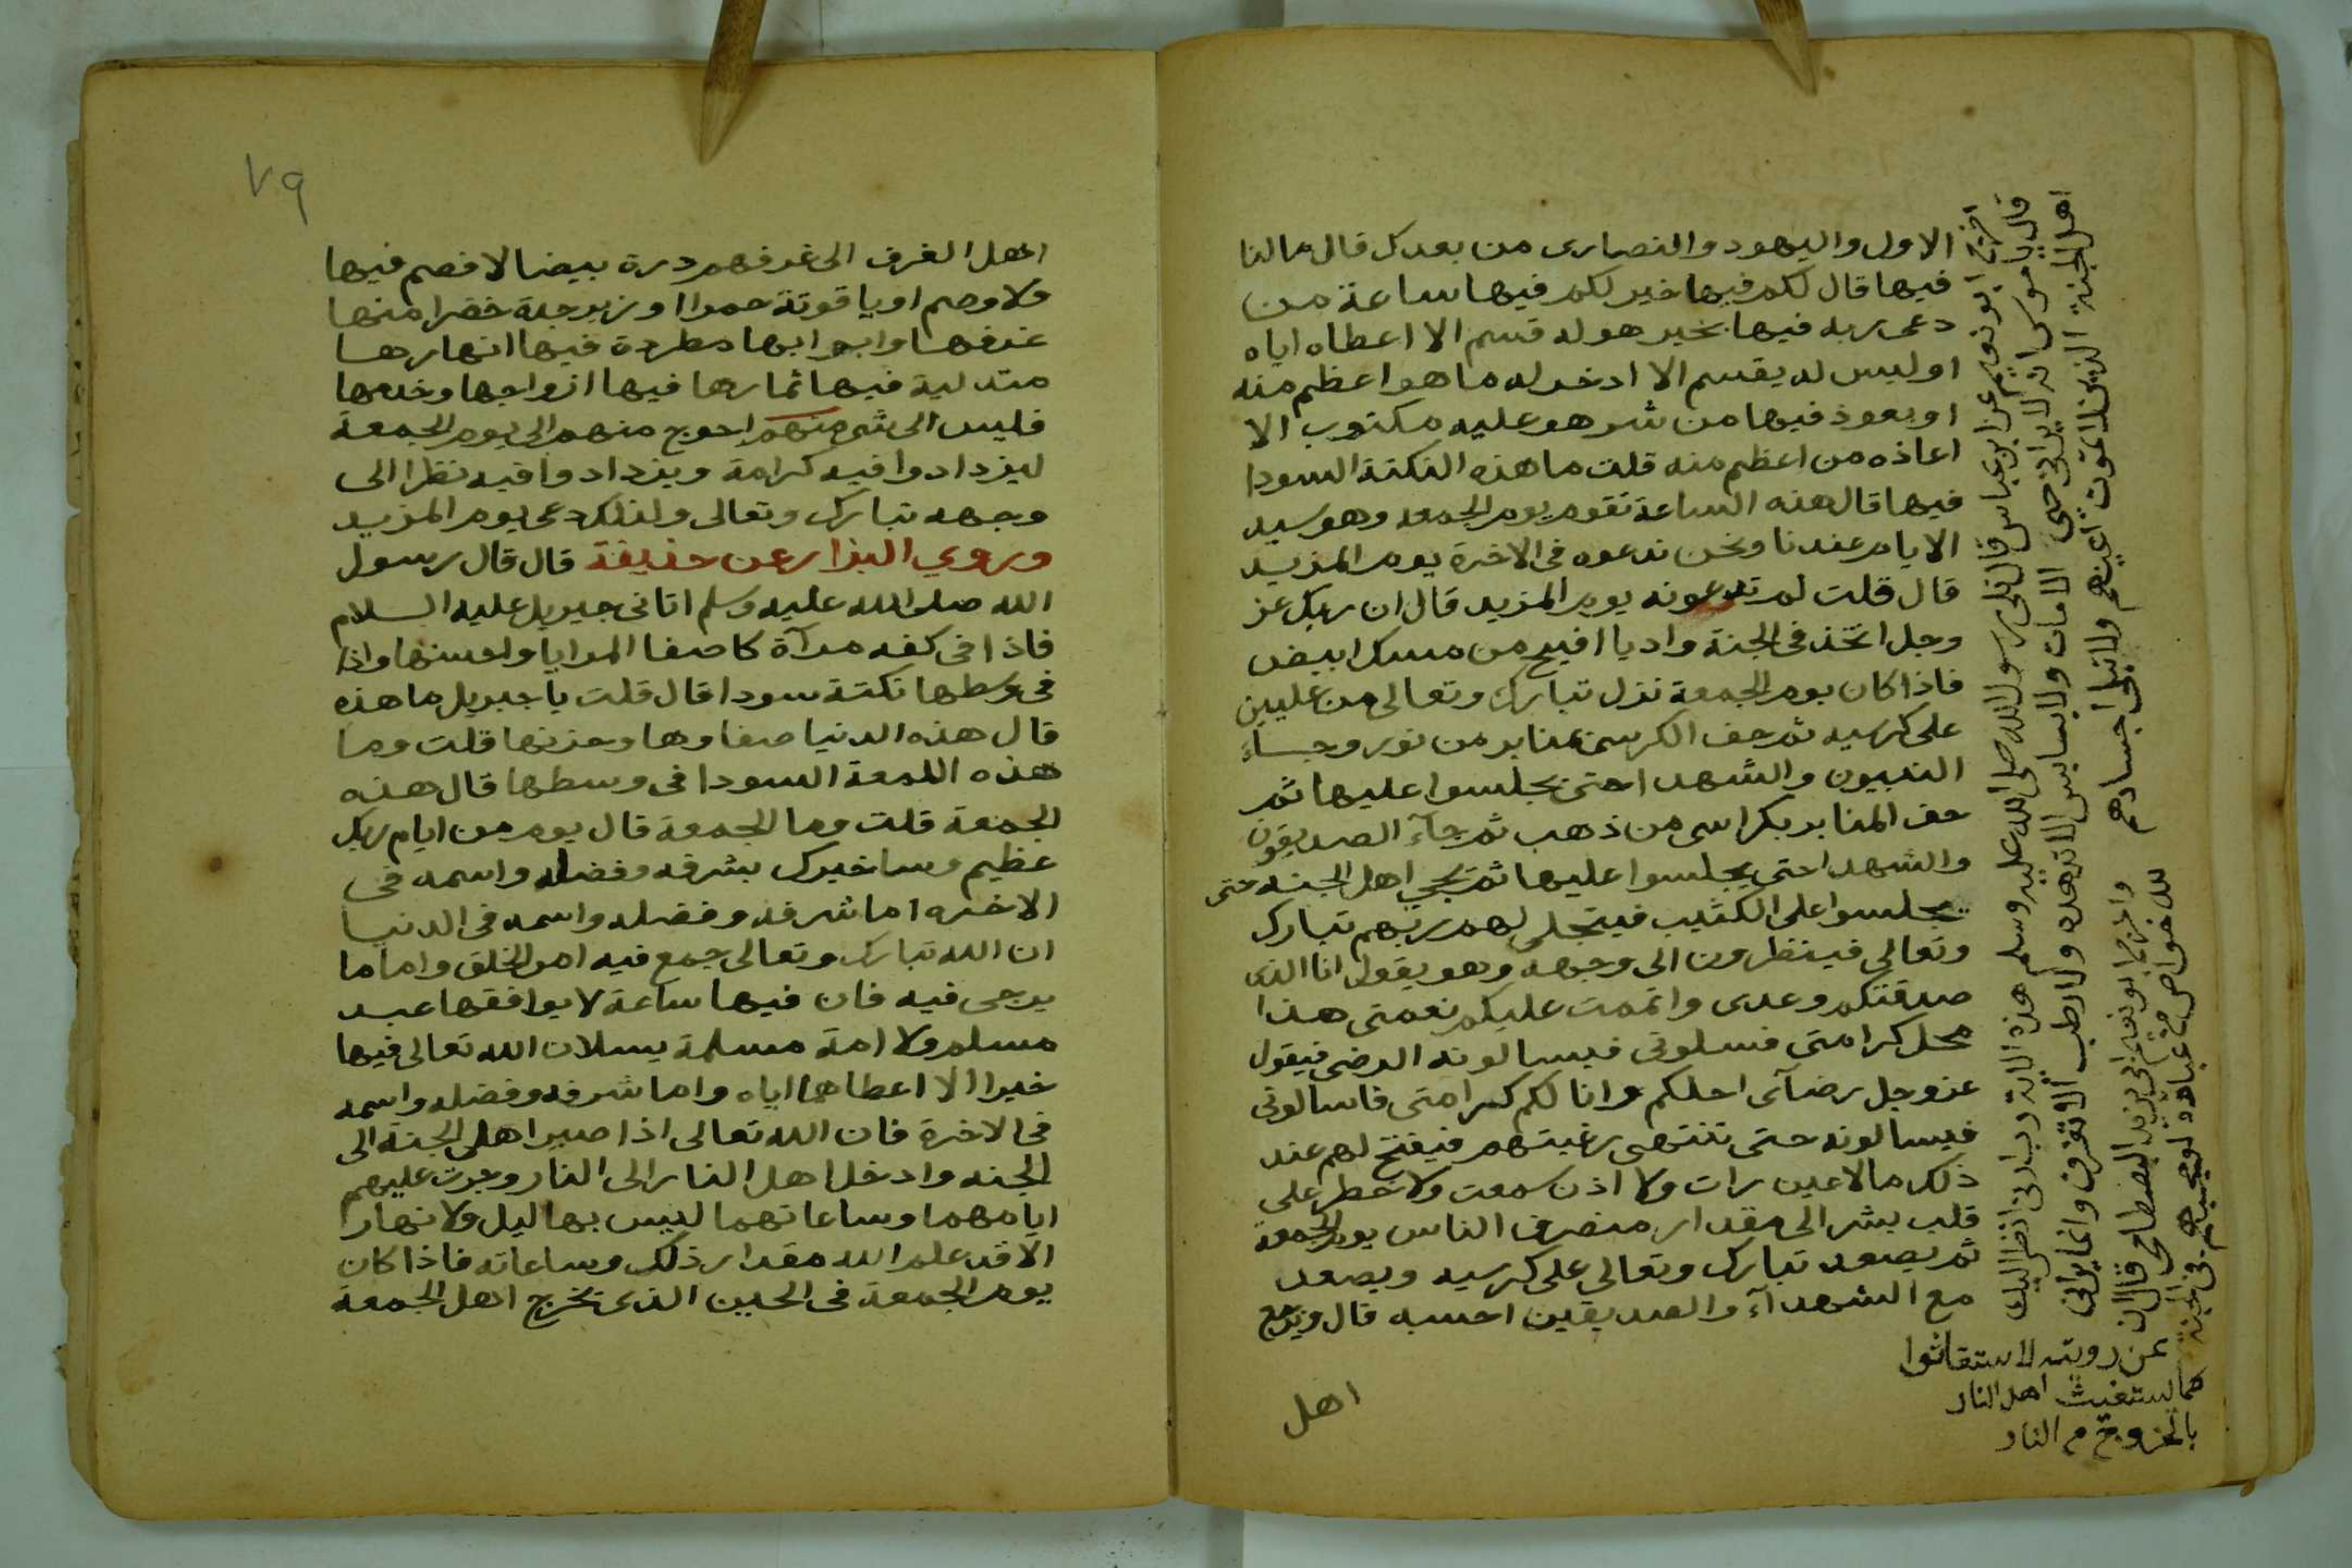 الاول واليهود والنصارى من بعدك قال مالنا
فيها قال لكم فيها خير لكم فيها ساعة من
دعى ربه فيها بخير هو له قسم الا اعطاه اياه
او ليس له يقسم الا ادخر له ما هو اعظم منه
او يعوذ فيها من شر هو عليه مكتوب الا
اعاذه من اعظم منه قلت ما هذه النكتة السودا
فيها قال هذه الساعة تقوم يوم الجمعه وهو سيد
الايام عندنا ونحن ندعوه في الاخرة يوم المزيد
قال قلت لم تدعونه يوم المزيد قال ان ربك عز
وجل اتخذ في الجنة واديا افيح من مسك ابيض
فاذا كان يوم الجمعة نزل تبارك وتعالى من عليين
على كرسيه ثم حف الكرسي بمنابر من نور وجاء
النبيون والشهدا حتى يجلسوا عليها ثم
حف المنابر بكراسي من ذهب ثم جآء الصديقون
والشهدا حتى يجلسوا عليها ثم يجي اهل الجنة حتى
يجلسوا على الكثيب فيتجلى لهم ربهم تبارك
وتعالى فينظرون الى وجهه وهو يقول انا الذى
صدقتكم وعدى واتممت عليكم نعمتي هذا
محل كرامتي فسلوني فيسالونه الرضى فيقول
عز وجل رضآئى احلكم وانا لكم كرامتى فاسالونى
فيسالونه حتى تنتهى رغبتهم فيفتح لهم عند
ذلك ما لا عين رات ولا اذن سمعت ولا خطر على
قلب بشر الى مقدار منصرف الناس يوم الجمعة
ثم يصعد تبارك وتعالى على كرسيه ويصعد
مع الشهدآء والصديقين احسبه قال ويرجع
اهل
اخرج ابو نعيم عن ابن عباس قال تلى رسول الله صلى الله عليه وسلم هذه الاية رب ارنى انظر اليك
قال يا موسى انه لا يرانى حى الا مات ولا يابس الا تدهده ولا رطب الا تفرق وانما يرانى
اهل الجنة الذين لا تموت اعينهم ولا تبلى اجسادهم
واخرج ابو نعيم عن ابى يزيد البسطامى قال ان
لله خواص من عباده لو حجبهم فى الجنة
عن رويته لاستغاثوا
كما يستغيث اهل النار
بالخروج من النار
٧٩
اهل الغرف الى غرفهم درة بيضا لا فصم فيها
ولا وصم او ياقوتة حمرا او زبرجدة خضرا منها
غرفها وابوابها مطردة فيها انهارها
متدلية فيها ثمارها فيها ازواجها وخدمها
فليس الى شي منهم احوج منهم الى يوم الجمعة
ليزدادوا فيه كرامة ويزدادوا فيه نظرا الى
وجهه تبارك وتعالى ولذلك دعى يوم المزيد
وروي البزار عن حذيفة قال قال رسول
الله صلى الله عليه وسلم اتانى جبريل عليه السلام
فاذا في كفه مرآة كاصفا المرايا واحسنها واذا
في وسطها نكتة سودا قال قلت يا جبريل ما هذه
قال هذه الدنيا صفاوها وحزنها قلت وما
هذه اللمعة السودا في وسطها قال هذه
الجمعة قلت وما الجمعة قال يوم من ايام ربك
عظيم وساخبرك بشرفه وفضله واسمه فى
الاخره اما شرفه وفضله واسمه فى الدنيا
ان الله تبارك وتعالى جمع فيه امر الخلق واما ما
يرجى فيه فان فيها ساعة لا يوافقها عبد
مسلم ولا امة مسلمة يسلان الله تعالى فيها
خيرا الا اعطاهما اياه واما شرفه وفضله واسمه
فى الاخرة فان الله تعالى اذا صير اهل الجنة الى
الجنه وادخل اهل النار الى النار وجرت عليهم
ايامهما وساعاتهما ليس بها ليل ولا نهار
الا قد علم الله مقدار ذلك وساعاته فاذا كان
يوم الجمعة فى الحين الذى تخرج اهل الجمعة